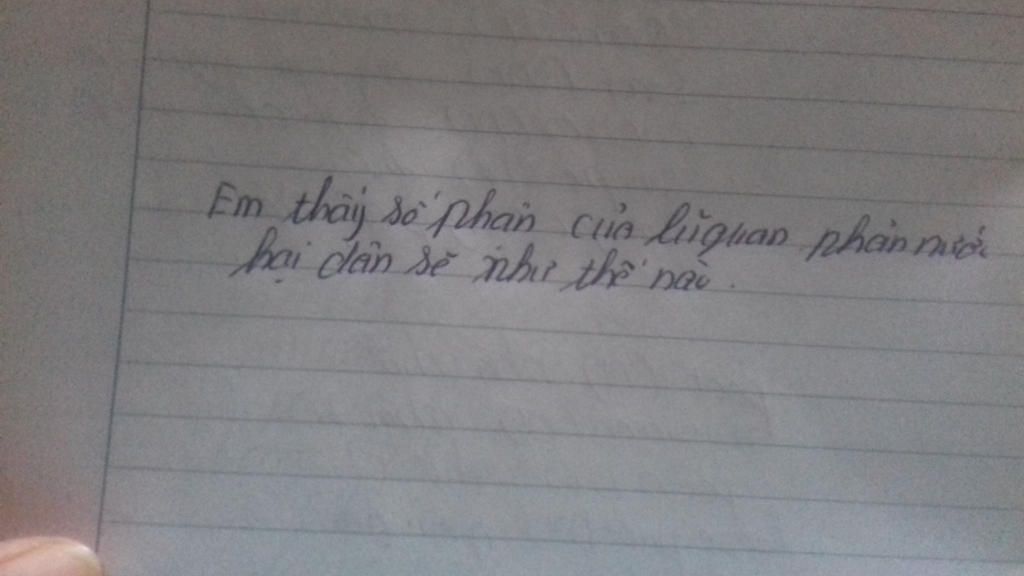 Em thấy số phận của lũ quan phản nước
hại dân sẽ như thế nào.